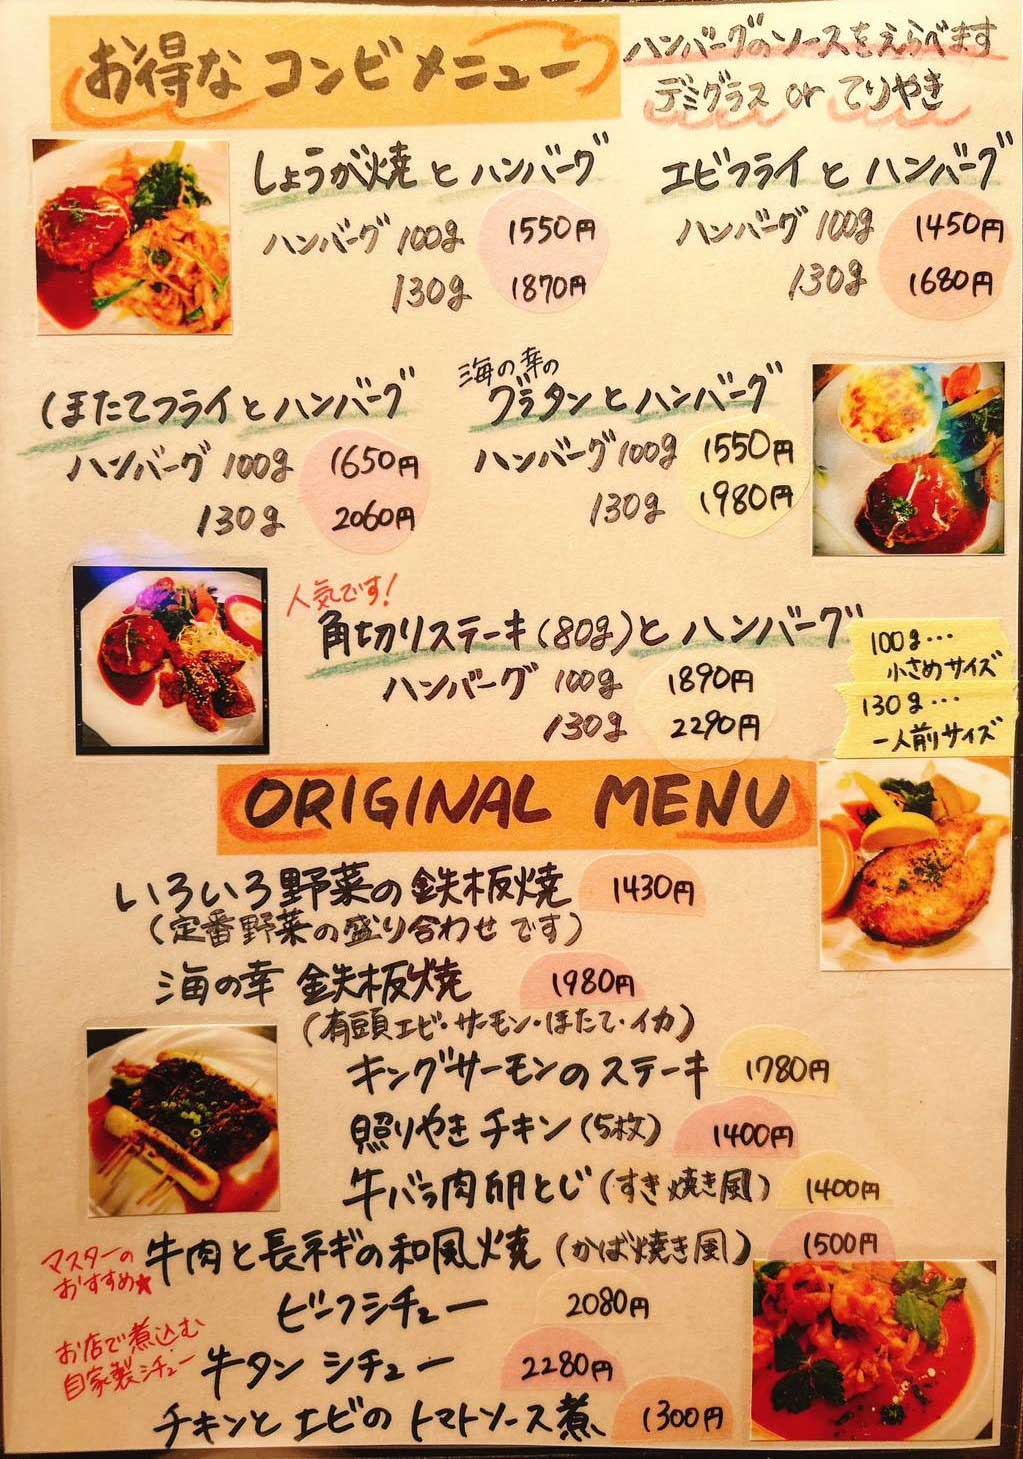 お得な コンビメニュー
ハンバーグのソースをえらべます
デミグラス or てりやき
しょうが焼 と ハンバーグ
ハンバーグ 100g 1550円
130g 1870円
エビフライ と ハンバーグ
ハンバーグ 100g 1450円
130g 1680円
ほたてフライ と ハンバーグ
ハンバーグ 100g 1650円
130g 2060円
海の幸の
グラタン と ハンバーグ
ハンバーグ 100g 1550円
130g 1980円
人気です!
角切りステーキ(80g)と ハンバーグ
ハンバーグ 100g 1890円
130g 2290円
100g…
小さめサイズ
130g…
一人前サイズ
ORIGINAL MENU
いろいろ野菜の 鉄板焼 1430円
(定番野菜の盛り合わせ です)
海の幸 鉄板焼 1980円
(有頭エビ・サーモン・ほたて・イカ)
キングサーモンの ステーキ 1780円
照りやき チキン (5枚) 1400円
牛バラ肉 卵とじ (すき焼き風) 1400円
マスターの
おすすめ★
牛肉と長ネギの和風焼 (かば焼き風) 1500円
ビーフシチュー 2080円
お店で煮込む
自家製シチュー
牛タン シチュー 2280円
チキンと エビの トマトソース煮 1300円